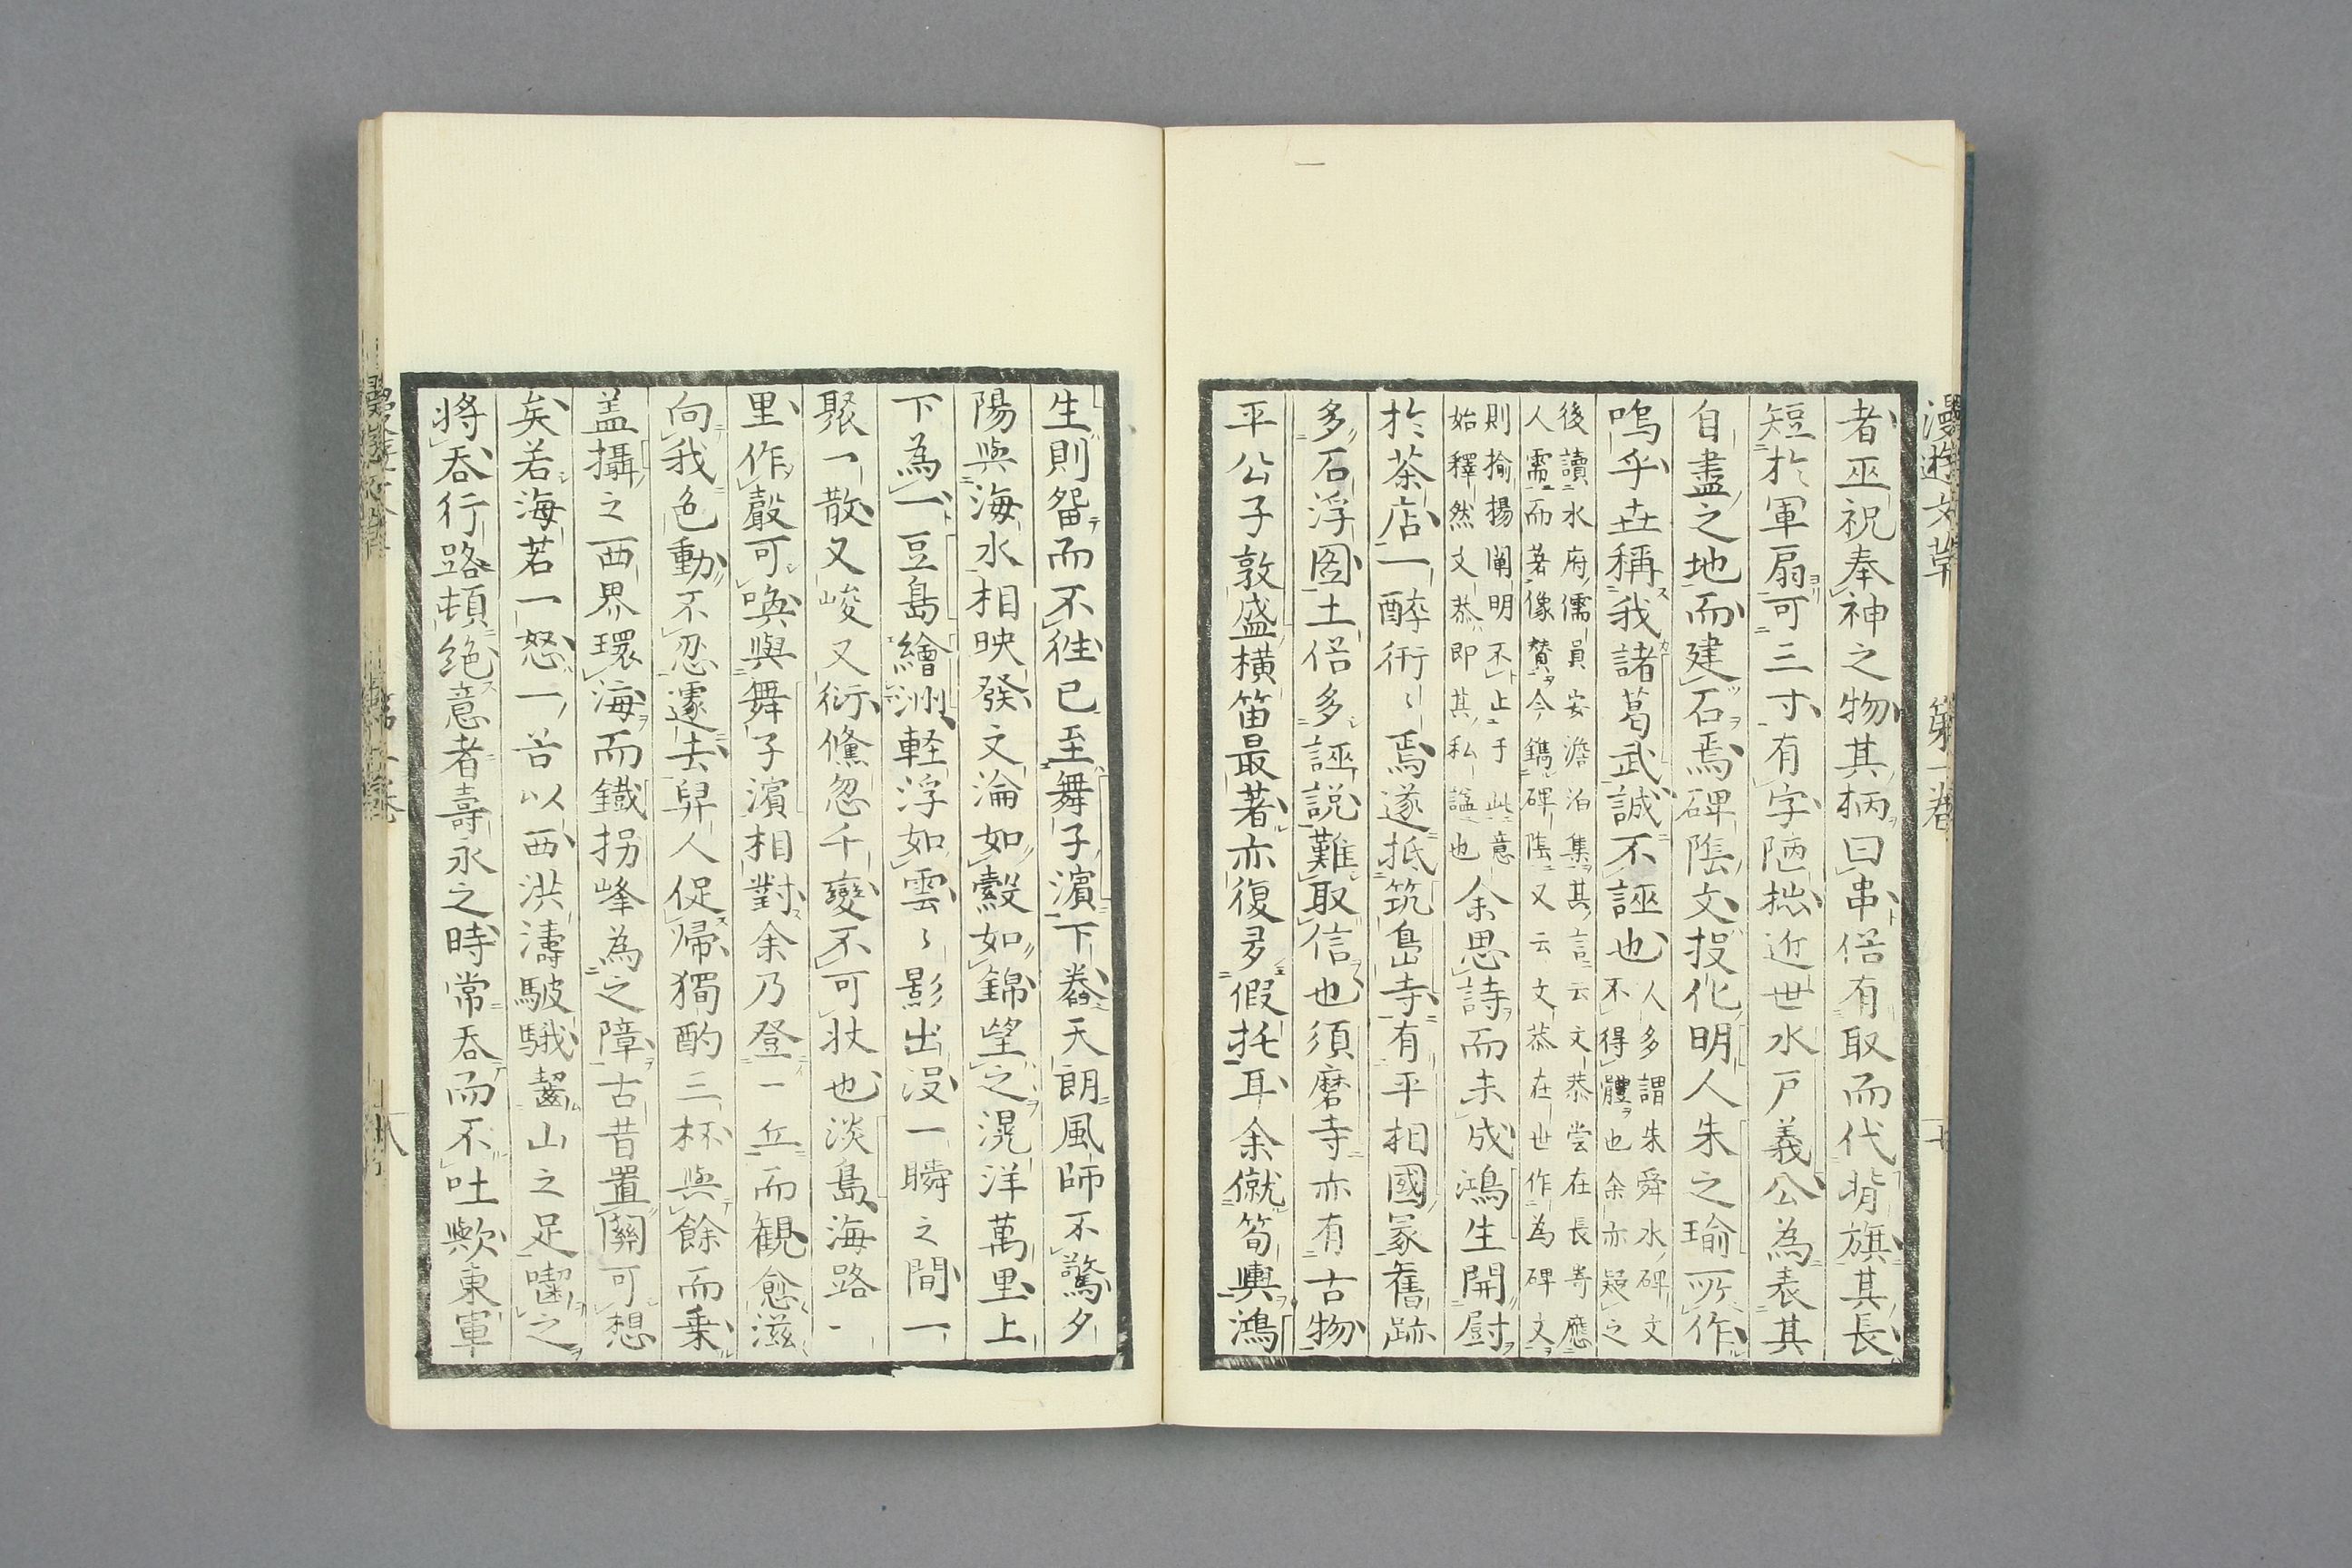 漫遊文草 第一卷
者巫祝奉神之物其柄曰串俗有取而代揹旗其長
短於軍扇可三寸有字陋拙近世水戸義公為表其
自盡之地而建石焉碑陰文投化明人朱之瑜所作
嗚乎世稱我諸葛武誠不誣也
人多謂朱舜水碑文
不得體也余亦疑之
後讀水府儒員安澹泊集其言云文恭嘗在長﨑應
人需而著像贊今鐫碑陰又云文恭在世作為碑文
則揄揚闡明不止于此意
始釋然文恭即其私謚也
余思詩而未成鴻生開尉
於茶店一醉衎〻焉遂抵筑島寺有平相國冢舊跡
多石浮圖土俗多誣説難取信也須磨寺亦有古物
平公子敦盛横笛最著亦復多假托耳余僦筍輿鴻
生則留而不徃已至舞子濱下轎天朗風師不驚夕
陽與海水相映發文淪如縠如錦望之滉洋萬里上
下為一豆島繪洲軽浮如雲〻影出没一瞬之間一
聚一散又峻又衍儵忽千變不可状也淡島海路一
里作聲可喚與舞子濱相對余乃登一丘而観愈滋
向我色動不忍遽去舁人促帰獨酌三杯與餘而乗
盖攝之西界環海而鐵拐峰為之障古昔置關可想
矣若海若一怒一苔以西洪濤駊騀齧山之足囓之
將吞行路頓絶意者壽永之時常吞而不吐歟東軍